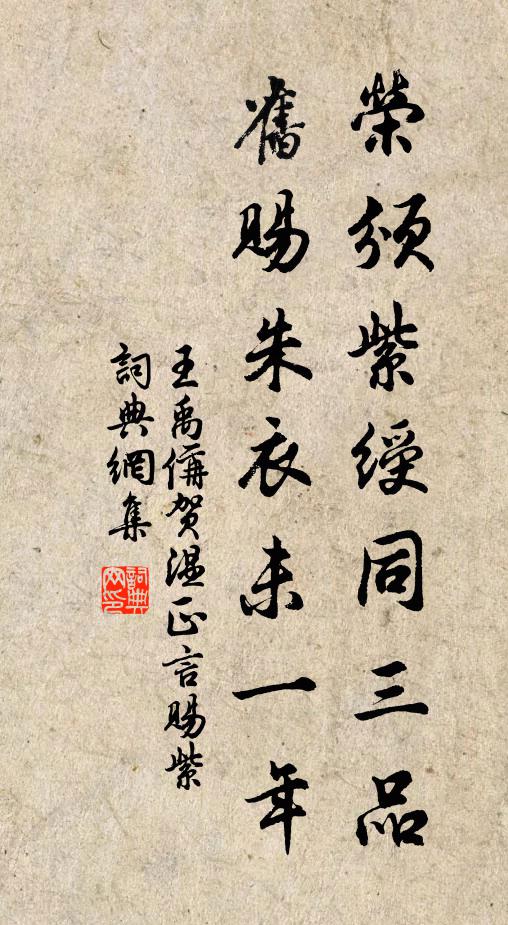 榮頒紫綬同三品
舊賜朱衣未一年
王禹偁賀温正言賜紫
詞典網集
詞典網印